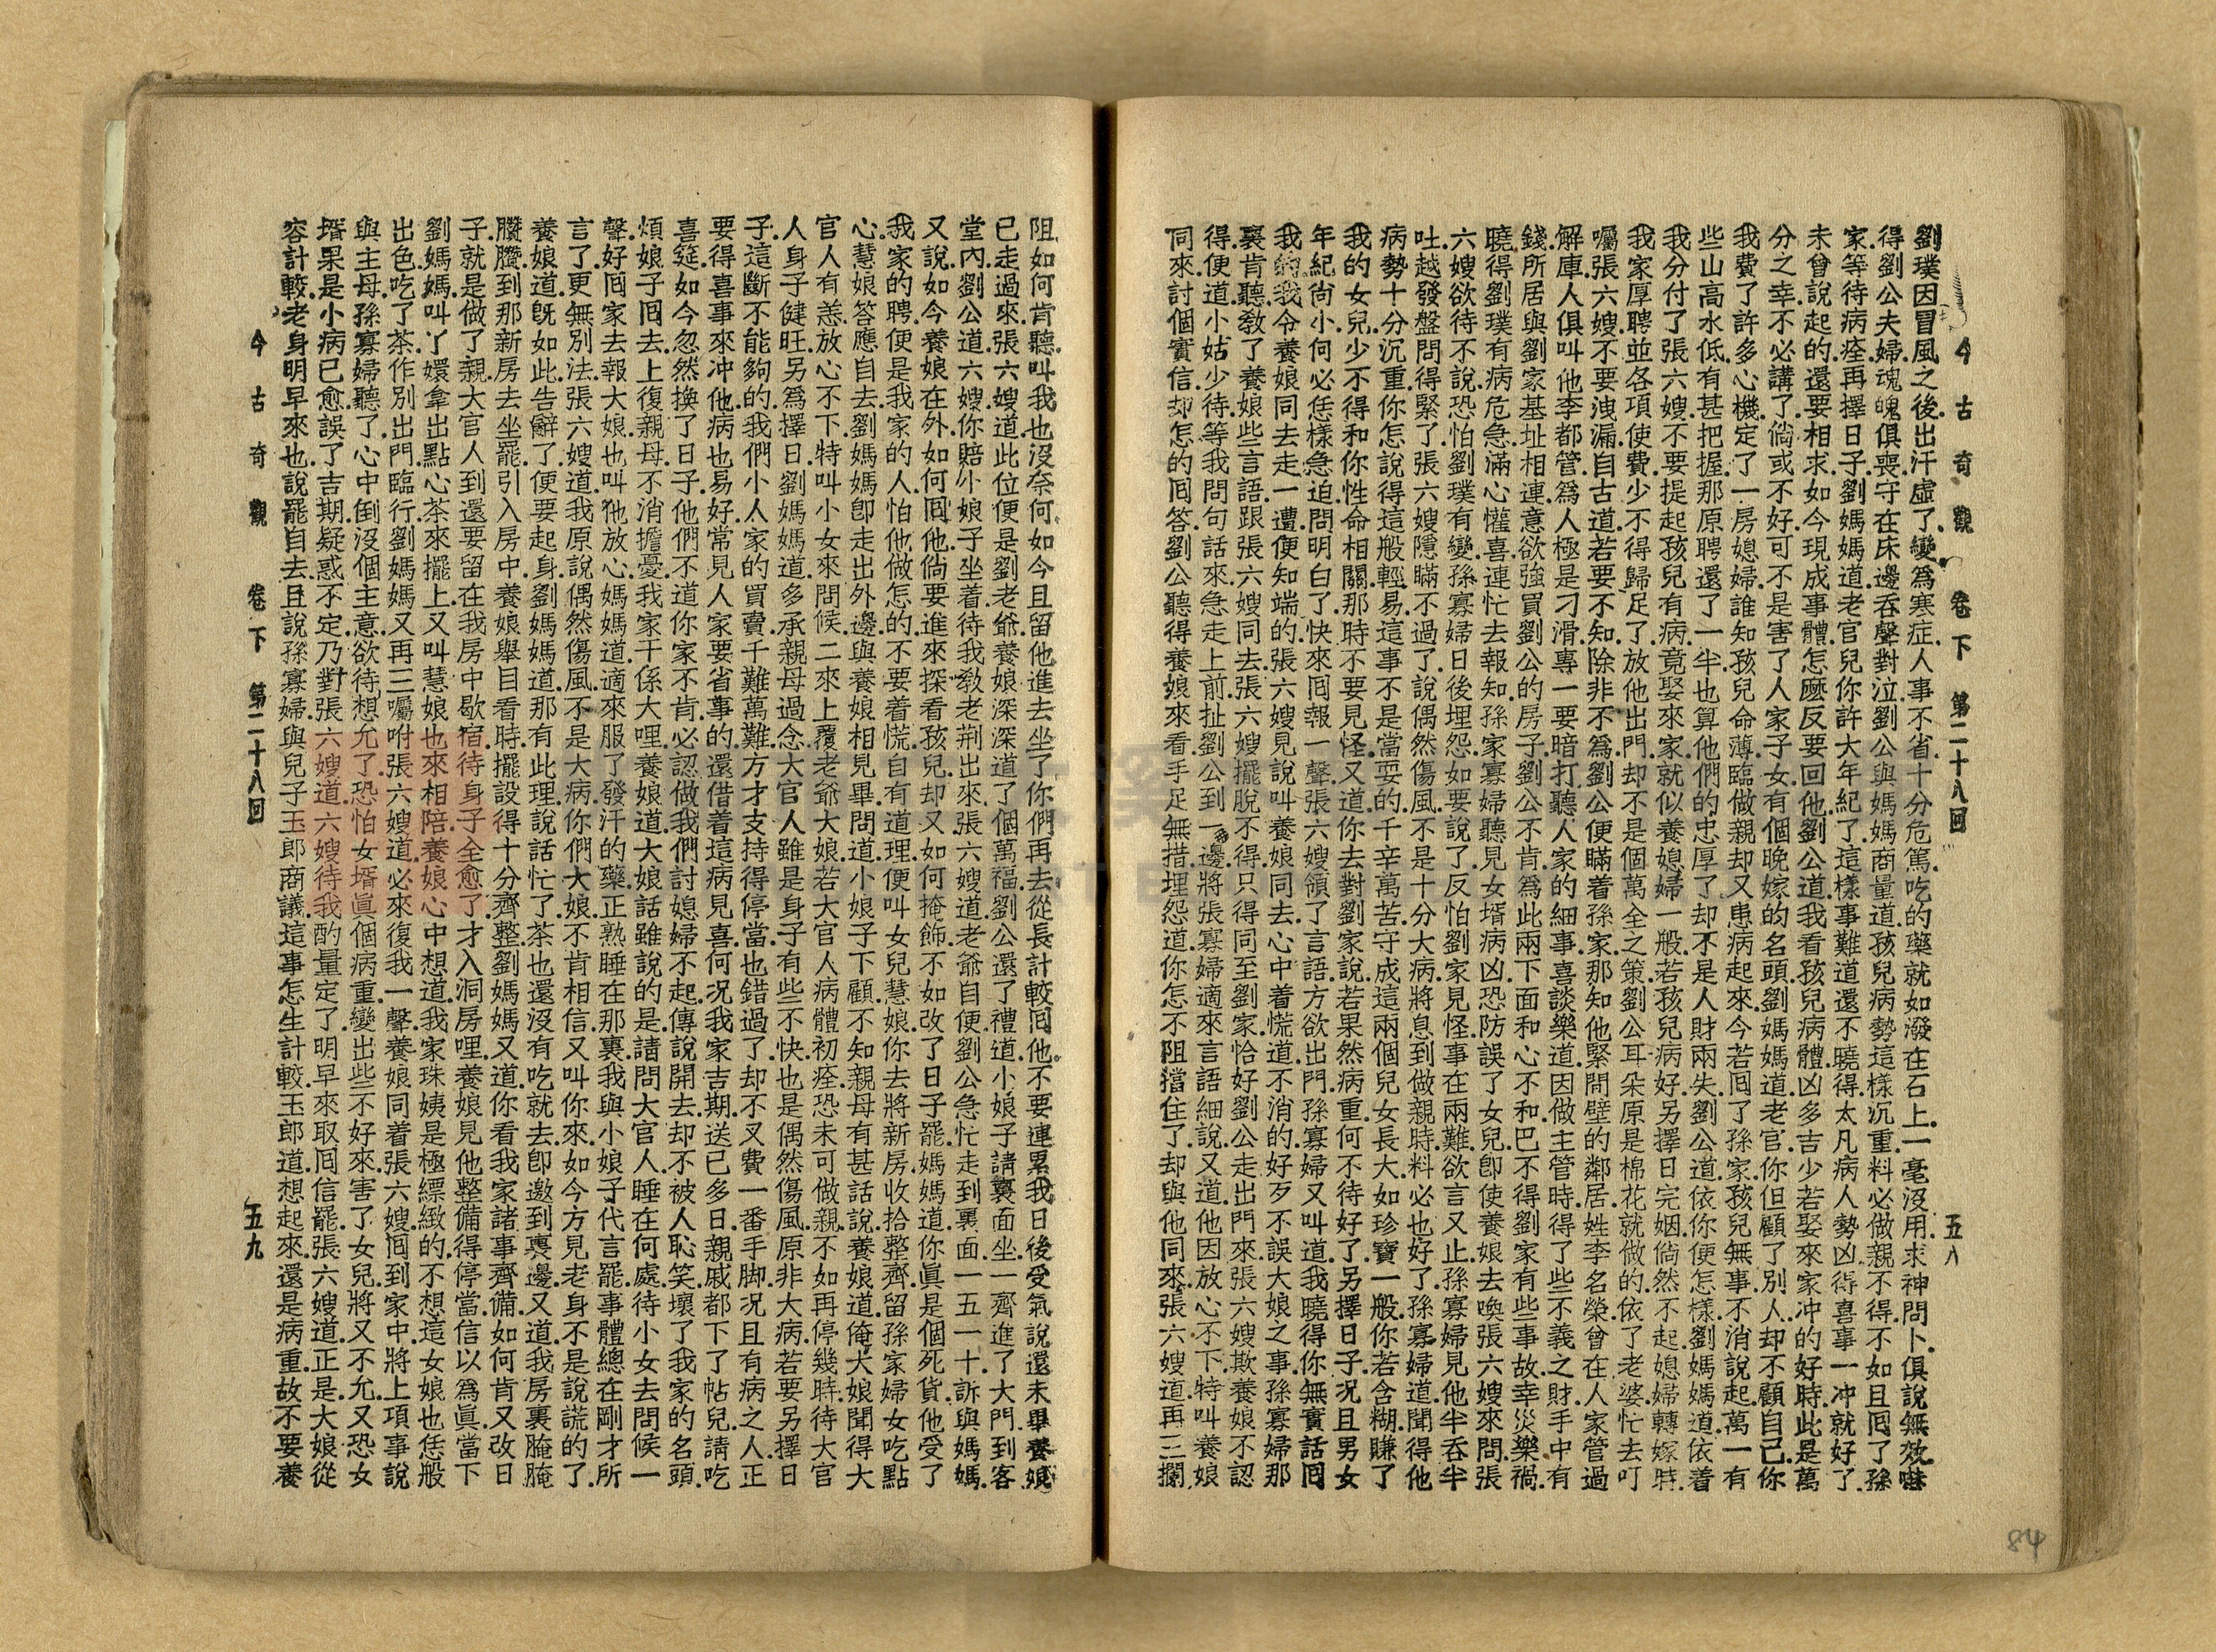 今古奇觀 卷下 第二十八回 五八
劉璞因冒風之後.出汗虛了.變爲寒症.人事不省.十分危篤.吃的藥就如潑在石上.一毫沒用.求神問卜.俱說無效.嚇
得劉公夫婦.魂魄俱喪.守在床邊.吞聲對泣.劉公與媽媽商量道.孩兒病勢這樣沉重.料必做親不得.不如且囘了孫
家.等待病痊.再擇日子.劉媽媽道.老官兒.你許大年紀了.這樣事難道還不曉得.太凡病人勢凶.得喜事一冲就好了.
未曾說起的.還要相求.如今現成事體.怎麼反要回他.劉公道.我看孩兒病體.凶多吉少.若娶來家冲的好時.此是萬
分之幸.不必講了.倘或不好.可不是害了人家子女.有個晚嫁的名頭.劉媽媽道.老官.你但顧了別人.却不顧自己.你
我費了許多心機.定了一房媳婦.誰知孩兒命薄.臨做親却又患病起來.今若囘了孫家.孩兒無事.不消說起.萬一有
些山高水低.有甚把握.那原聘還了一半.也算他們的忠厚了.却不是人財兩失.劉公道.依你便怎樣.劉媽媽道.依着
我分付了張六嫂.不要提起孩兒有病.竟娶來家.就似養媳婦一般.若孩兒病好.另擇日完姻.倘然不起.媳婦轉嫁時.
我家厚聘並各項使費.少不得歸足了.放他出門.却不是個萬全之策.劉公耳朵原是棉花就做的.依了老婆.忙去叮
囑張六嫂不要洩漏.自古道.若要不知.除非不爲.劉公便瞞着孫家.那知他緊間壁的鄰居.姓李名榮.曾在人家管過
解庫.人俱叫他李都管.爲人極是刁滑.專一要暗打聽人家的細事.喜談樂道.因做主管時.得了些不義之財.手中有
錢.所居與劉家基址相連.意欲強買劉公的房子.劉公不肯.爲此兩下面和心不和.巴不得劉家有些事故.幸災樂禍.
曉得劉璞有病危急.滿心懽喜.連忙去報知孫家.寡婦聽見女壻病凶.恐防誤了女兒.卽使養娘去喚張六嫂來問.張
六嫂欲待不說.恐怕劉璞有變.孫寡婦日後埋怨.如要說了.反怕劉家見怪.事在兩難.欲言又止.孫寡婦見他半吞半
吐.越發盤問得緊了.張六嫂隱瞞不過了.說偶然傷風.不是十分大病.將息到做親時.料必也好了.孫寡婦道.聞得他
病勢十分沉重.你怎說得這般輕易.這事不是當耍的.千辛萬苦.守成這兩個兒女長大.如珍寶一般.你若含糊賺了
我的女兒.少不得和你性命相關.那時不要見怪.又道.你去對劉家說.若果然病重.何不待好了.另擇日子.况且男女
年紀尙小.何必恁樣急迫.問明白了.快來囘報一聲.張六嫂領了言語.方欲出門.孫寡婦又叫道.我曉得你無實話囘
我的.我令養娘同去走一遭.便知端的.張六嫂見說叫養娘同去.心中着慌道.不消的.好歹不誤大娘之事.孫寡婦那
裏肯聽.敎了養娘些言語.跟張六嫂同去.張六嫂擺脫不得.只得同至劉家.恰好劉公走出門來.張六嫂欺養娘不認
得.便道小姑.少待.等我問句話來.急走上前.扯劉公到一邊.將張寡婦適來言語細說.又道.他因放心不下.特叫養娘
同來討個實信.却怎的囘答.劉公聽得養娘來看.手足無措.埋怨道.你怎不阻擋住了.却與他同來.張六嫂道.再三攔
阻.如何肯聽.叫我也沒奈何.如今且留他進去坐了.你們再去從長計較囘他.不要連累我日後受氣.說還未畢.養娘
已走過來.張六嫂道.此位便是劉老爺.養娘深深道了個萬福.劉公還了禮道.小娘子請裏面坐.一齊進了大門.到客
堂內.劉公道.六嫂你賠小娘子坐着.待我敎老荆出來.張六嫂道.老爺自便.劉公急忙走到裏面.一五一十.訴與媽媽.
又說如今養娘在外.如何囘他.倘要進來探看孩兒.却又如何掩飾.不如改了日子罷.媽媽道.你眞是個死貨.他受了
我家的聘.便是我家的人.怕他做怎的.不要着慌.自有道理.便叫女兒慧娘.你去將新房收拾整齊.留孫家婦女吃點
心.慧娘答應自去.劉媽媽卽走出外邊.與養娘相見畢.問道.小娘子下顧.不知親母有甚話說.養娘道.俺大娘聞得大
官人有恙.放心不下.特叫小女來問候.二來上覆老爺大娘.若大官人病體初痊.恐未可做親.不如再停幾時.待大官
人身子健旺.另爲擇日.劉媽媽道.多承親母過念.大官人雖是身子有些不快.也是偶然傷風.原非大病.若要另擇日
子.這斷不能夠的.我們小人家的買賣.千難萬難.方才支持得停當.也錯過了.却不又費一番手脚.况且有病之人.正
要得喜事來冲.他病也易好.常見人家要省事的.還借着這病見喜.何况我家吉期.送已多日.親戚都下了帖兒.請吃
喜筵.如今忽然換了日子.他們不道你家不肯.必認做我們討媳婦不起.傳說開去.却不被人恥笑.壞了我家的名頭.
煩娘子囘去上復親母.不消擔憂.我家干係大哩.養娘道.大娘話雖說的是.請問大官人睡在何處.待小女去問候一
聲.好囘家去報大娘.也叫他放心.媽媽道.適來服了發汗的藥.正熟睡在那裏.我與小娘子代言罷.事體總在剛才所
言了.更無別法.張六嫂道.我原說偶然傷風.不是大病.你們大娘不肯相信.又叫你來.如今方見老身不是說謊的了.
養娘道.旣如此告辭了.便要起身.劉媽媽道.那有此理.說話忙了.茶也還沒有吃.就去.卽邀到裏邊.又道.我房裏腌腌
臢臢.到那新房去坐罷.引入房中.養娘舉目看時.擺設得十分齊整.劉媽媽又道.你看我家諸事齊備.如何肯又改日
子.就是做了親.大官人到還要留在我房中歇宿.待身子全愈了.才入洞房哩.養娘見他整備得停當.信以爲眞.當下
劉媽媽叫丫嬛.拿出點心茶來擺上.又叫慧娘也來相陪.養娘心中想道.我家珠姨是極縹緻的.不想這女娘也恁般
出色.吃了茶.作別出門.臨行.劉媽媽又再三囑咐張六嫂道.必來復我一聲.養娘同着張六嫂囘到家中.將上項事說
與主母.孫寡婦聽了.心中倒沒個主意.欲待想允了.恐怕女壻眞個病重.變出些不好來.害了女兒.將又不允.又恐女
壻果是小病已愈.誤了吉期.疑惑不定.乃對張六嫂道.六嫂.待我酌量定了.明早來取囘信罷.張六嫂道.正是.大娘從
容計較.老身明早來也.說罷自去.且說孫寡婦與兒子玉郎商議.這事怎生計較.玉郎道.想起來還是病重.故不要養
今古奇觀 卷下 第二十八回 五九
84